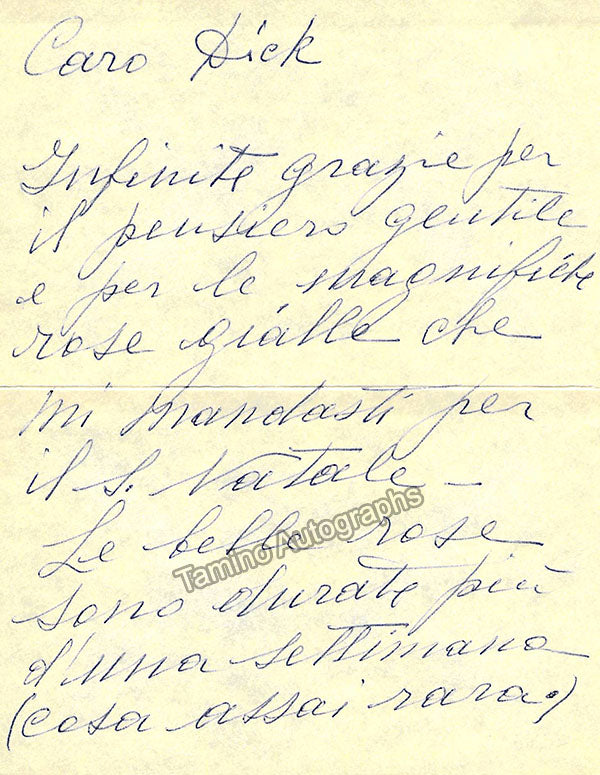 Caro Dick
Infinite grazie per
il pensiero gentile
e per le magnifiche
rose gialle che
mi mandasti per
il S. Natale –
Le belle rose
Tamino Autographs
sono durate più
d'una settimana
(cosa assai rara.)